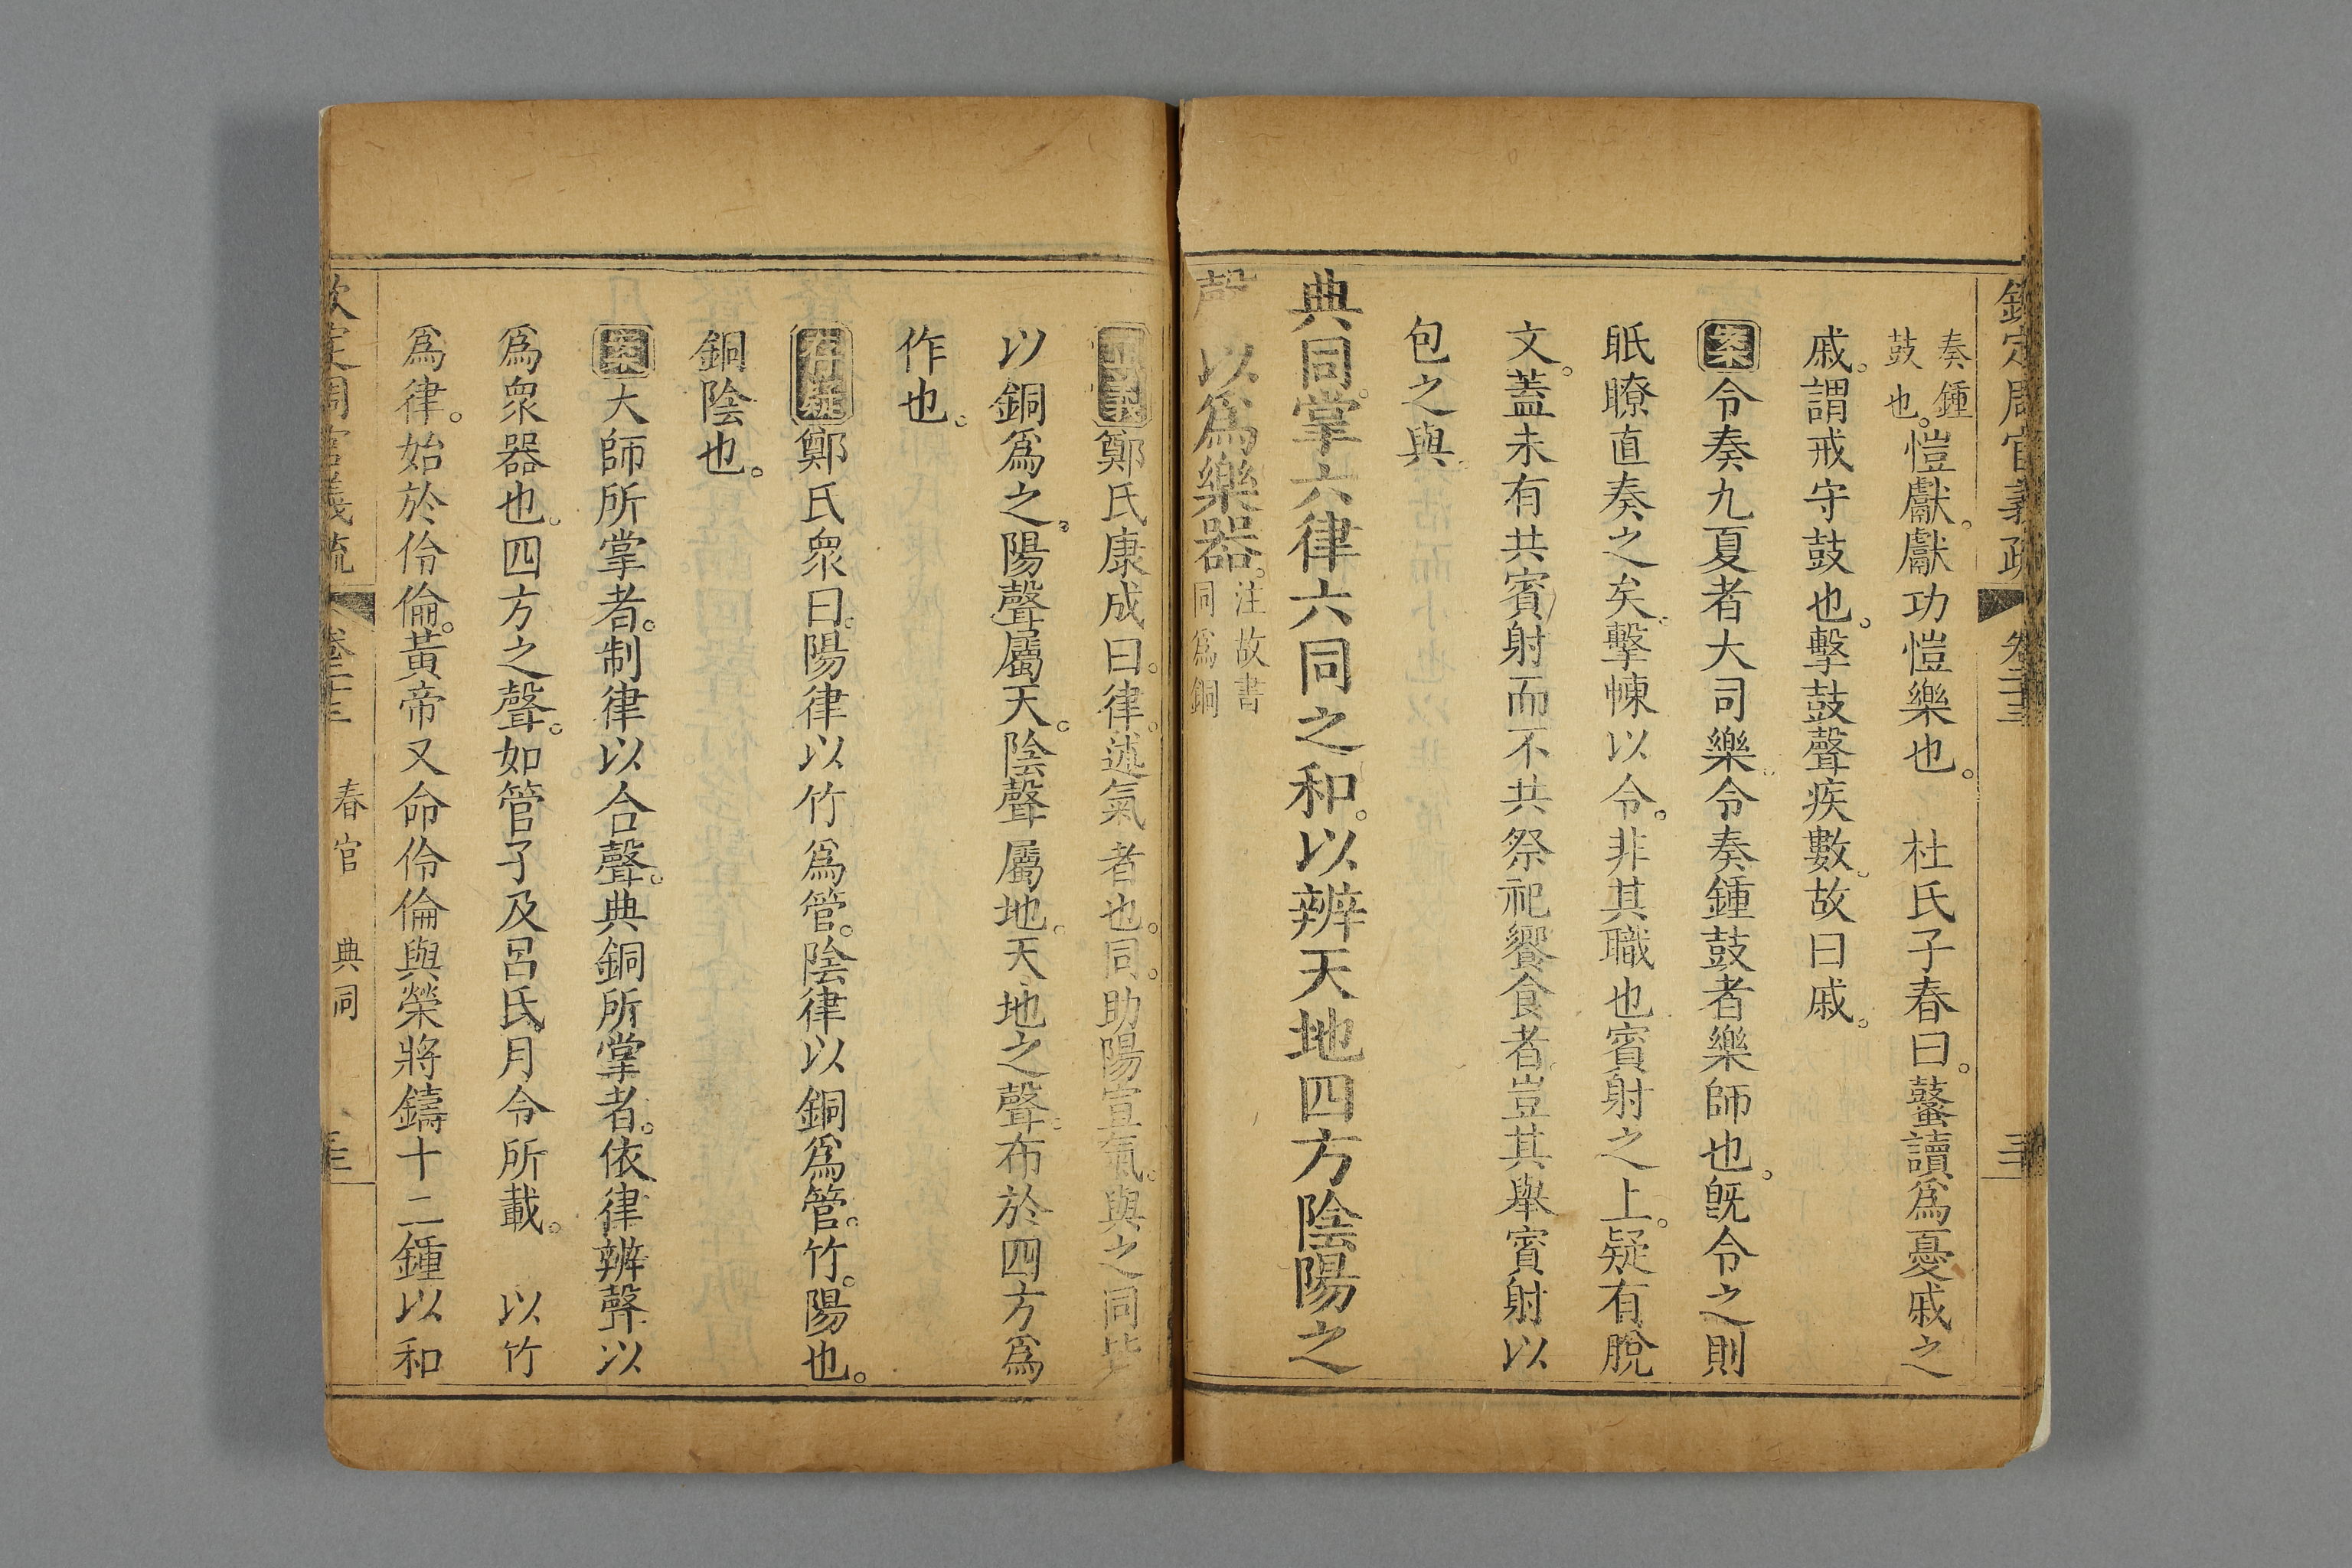 欽定周官義疏 卷二十三
奏鍾
鼓也。
愷獻。獻功愷樂也。 杜氏子春曰。鼜讀爲憂戚之
戚。謂戒守鼓也。擊鼓聲疾數。故曰戚。
案令奏九夏者大司樂。令奏鍾鼓者樂師也。旣令之則
眂瞭直奏之矣。擊朄以令。非其職也賓射之上。疑有脫
文。蓋未有共賓射而不共祭祀饗食者。豈其舉賓射以
包之與。
典同。掌六律六同之和。以辨天地四方陰陽之
聲以爲樂器。
注故書
同爲銅
正義鄭氏康成曰。律。述氣者也。同。助陽宣氣。與之同皆
以銅爲之。陽聲屬天。陰聲屬地。天地之聲。布於四方爲
作也。
存疑鄭氏衆曰。陽律以竹爲管。陰律以銅爲管。竹。陽也。
銅陰也。
案大師所掌者。制律以合聲。典銅所掌者。依律辨聲以
爲衆器也。四方之聲。如管子及呂氏月令所載。 以竹
爲律。始於伶倫。黃帝又命伶倫與榮將鑄十二鍾以和
欽定周官義疏 卷二十三 春官 典同